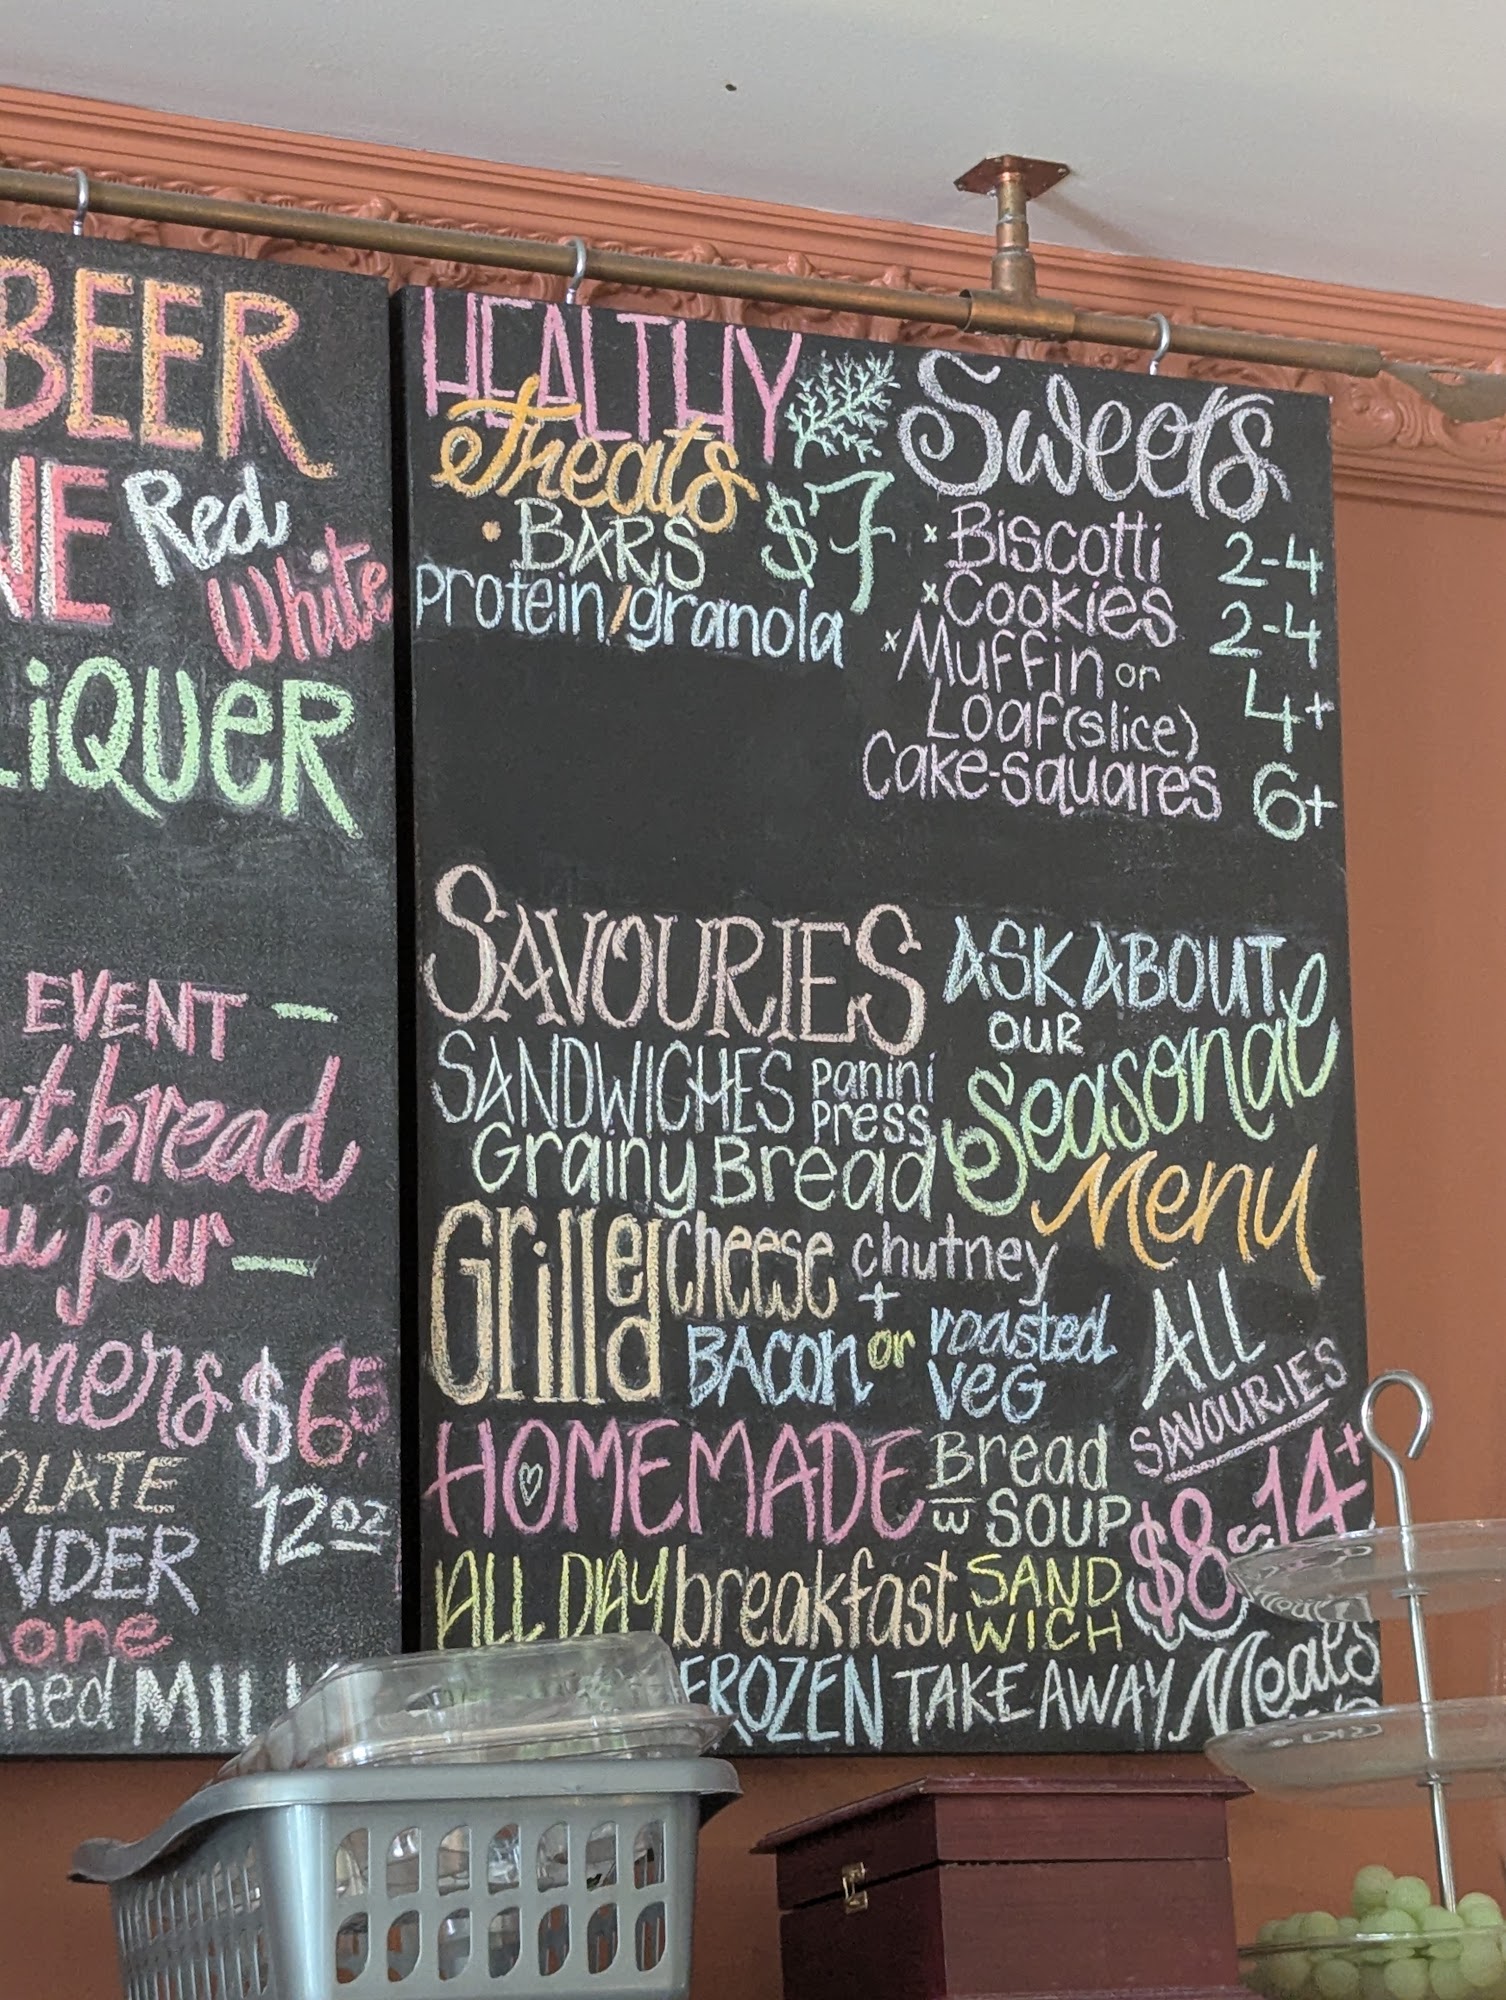 BEER
Red
White
LiQUeR
EVENT –
bread
jour –
$6.5
12oz
MILK
HEALTHY
Treats
• BARS $7
protein/granola
Sweets
x Biscotti 2-4
x Cookies 2-4
x Muffin or
Loaf (slice) 4+
Cake-squares 6+
SAVOURIES
SANDWICHES panini
press
Grainy Bread
Grilled cheese chutney
+
BACON or roasted
VEG
HOMEMADE Bread
w SOUP
ALL DAY breakfast SAND
WICH
FROZEN TAKE AWAY Meals
ASK ABOUT
OUR
Seasonal
Menu
ALL
SAVOURIES
$8-14+